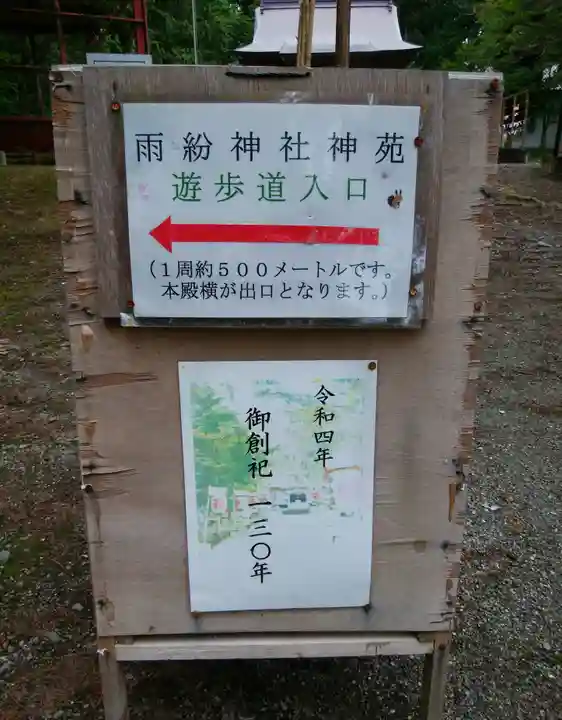 雨紛神社神苑
遊歩道入口
(1周約500メートルです。
本殿横が出口となります。)
令和四年
御創祀 一三〇年